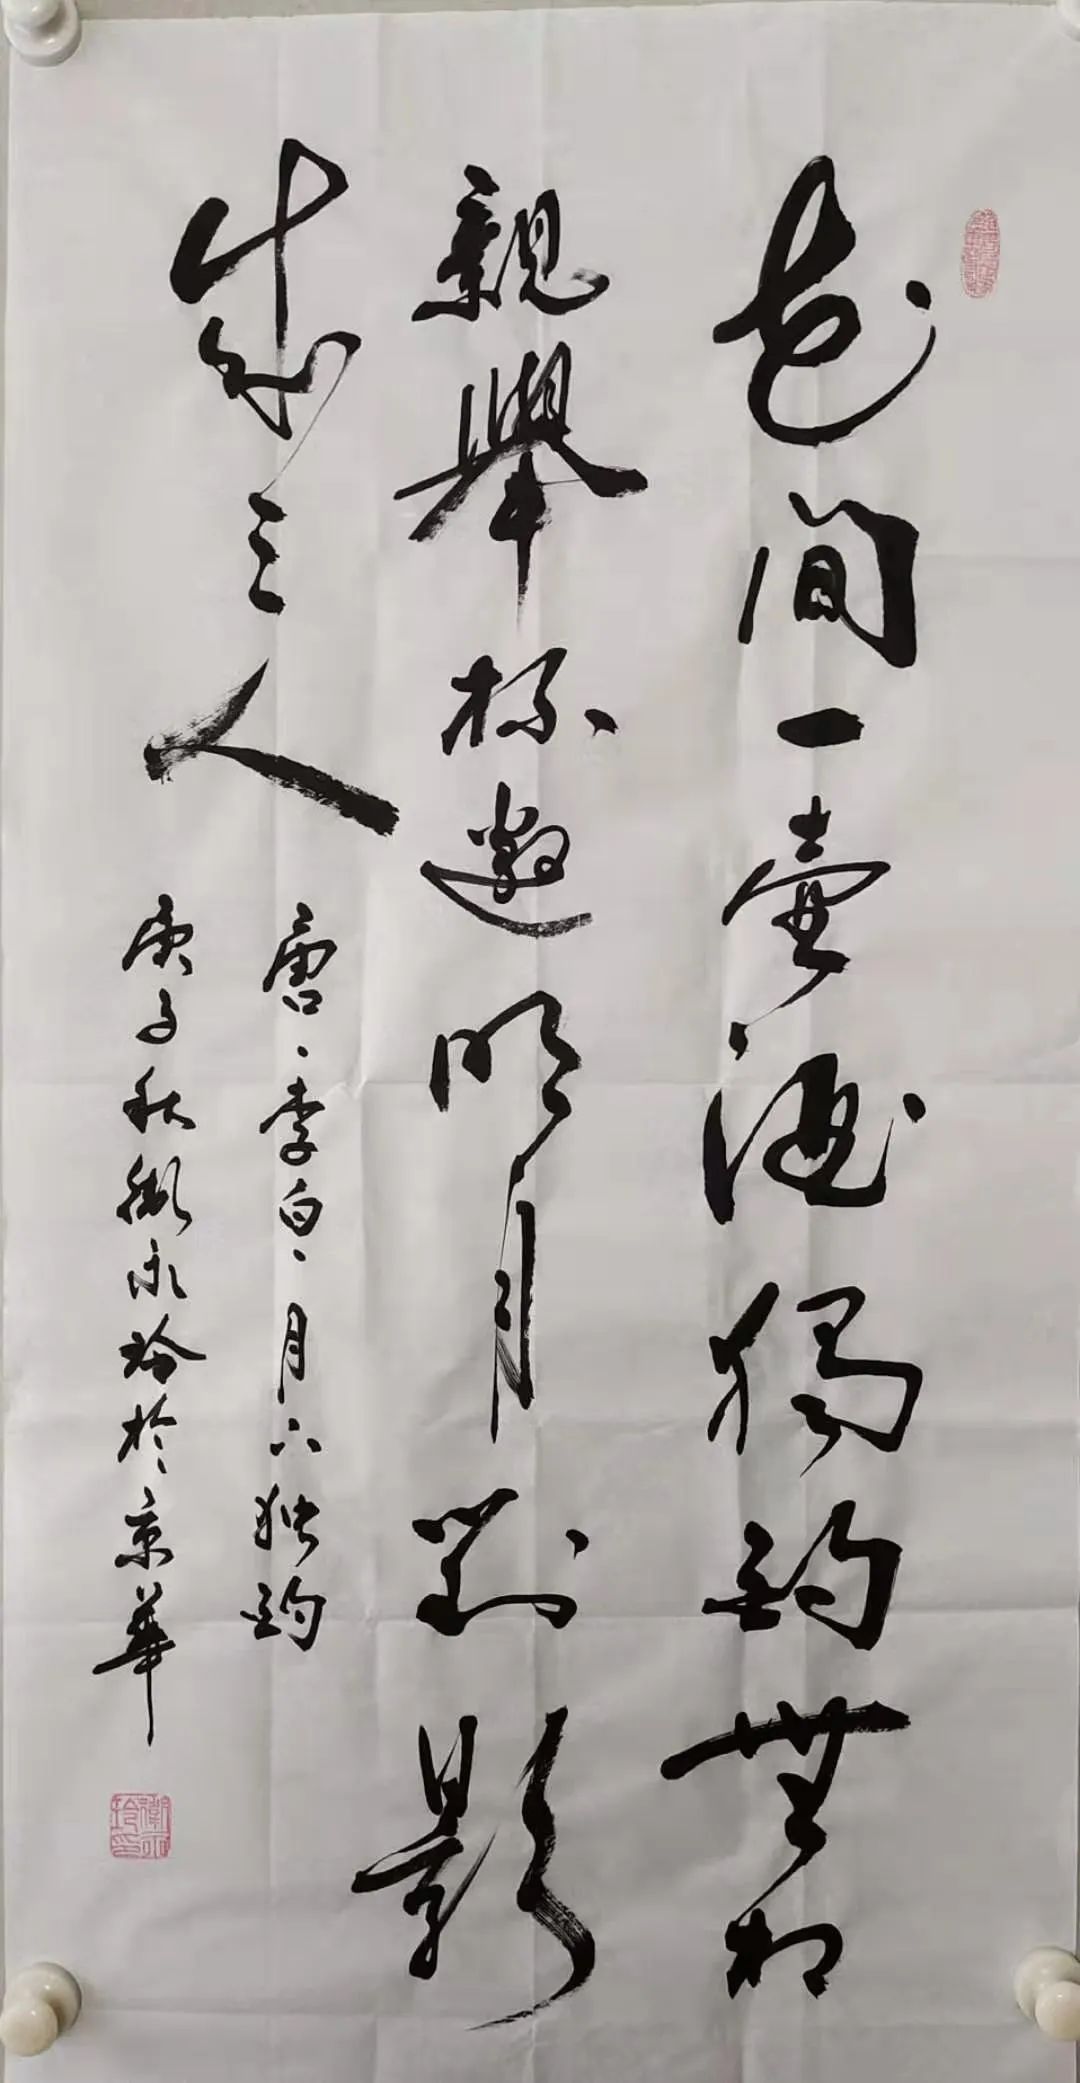 花間一壺酒獨酌無相
親舉杯邀明月對影
成三人
唐·李白·月下独酌
庚子秋衛永玲於京華
衛永玲印